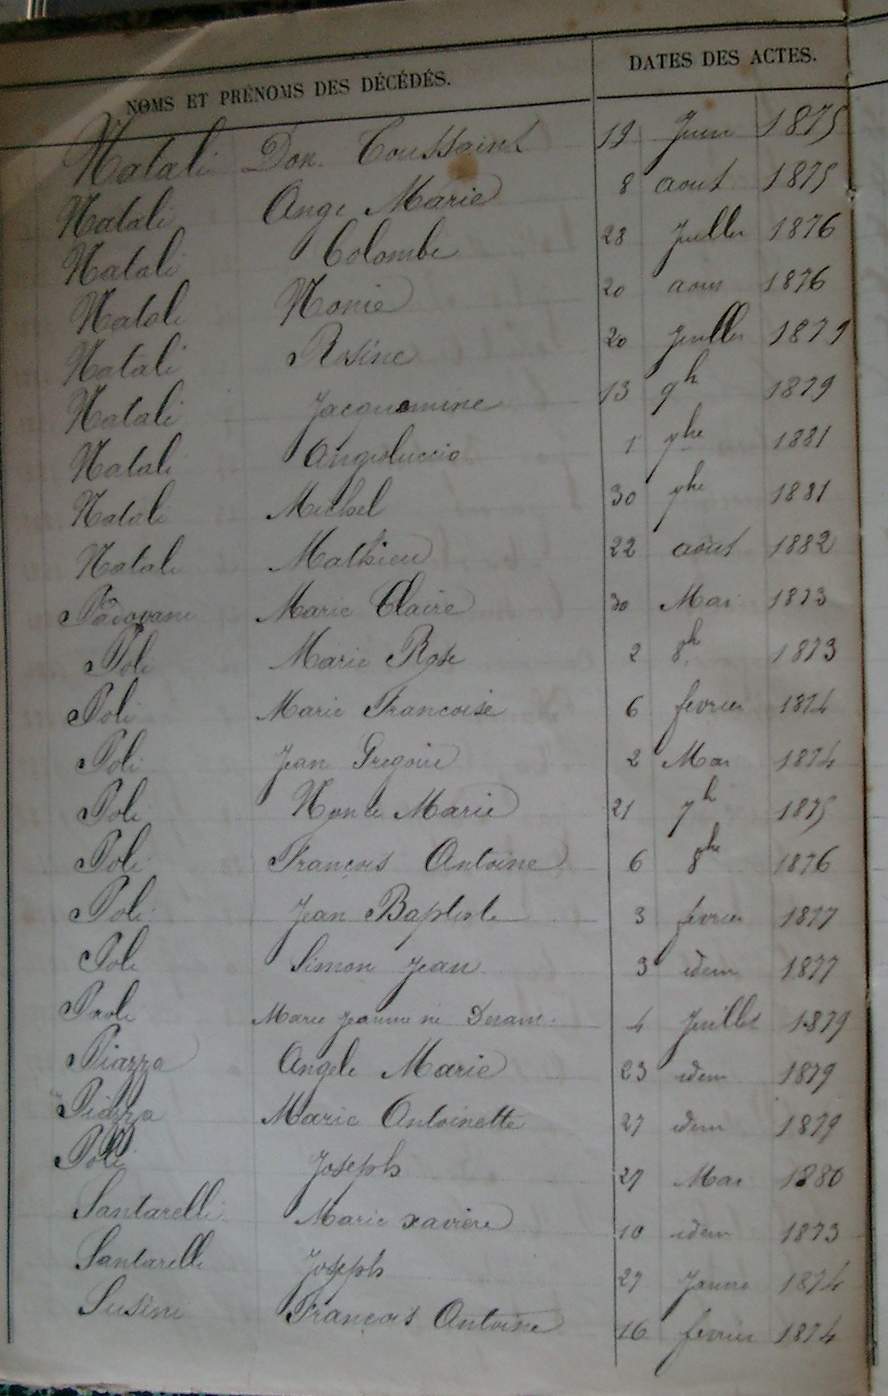 NOMS ET PRÉNOMS DES DÉCÉDÉS. DATES DES ACTES.
Natali Don Toussaint 19 Juin 1875
Natali Ange Marie 8 aout 1875
Natali Colombe 28 Juillet 1876
Natali Nonie 20 aout 1876
Natali Rosine 20 Juillet 1879
Natali Jacquemine 13 9h 1879
Natali Angeluccia 1 1881
Natali Michel 30 1881
Natali Mathieu 22 aout 1882
Padovani Marie Claire 30 Mai 1873
Poli Marie Rose 2 8h 1873
Poli Marie Francoise 6 fevrier 1874
Poli Jean Gregoire 2 Mai 1874
Poli Marie 21 7h 1875
Poli François Antoine 6 8bre 1876
Poli Jean Baptiste 3 fevrier 1877
Poli Simon Jean 3 idem 1877
Paoli Marie Jeanne 4 Juillet 1879
Piazza Angele Marie 23 idem 1879
Piazza Marie Antoinette 27 idem 1879
Poli Joseph 27 Mai 1880
Santarelli Marie xavière 10 idem 1873
Santarelli Joseph 27 1874
Susini François Antoine 16 fevrier 1874